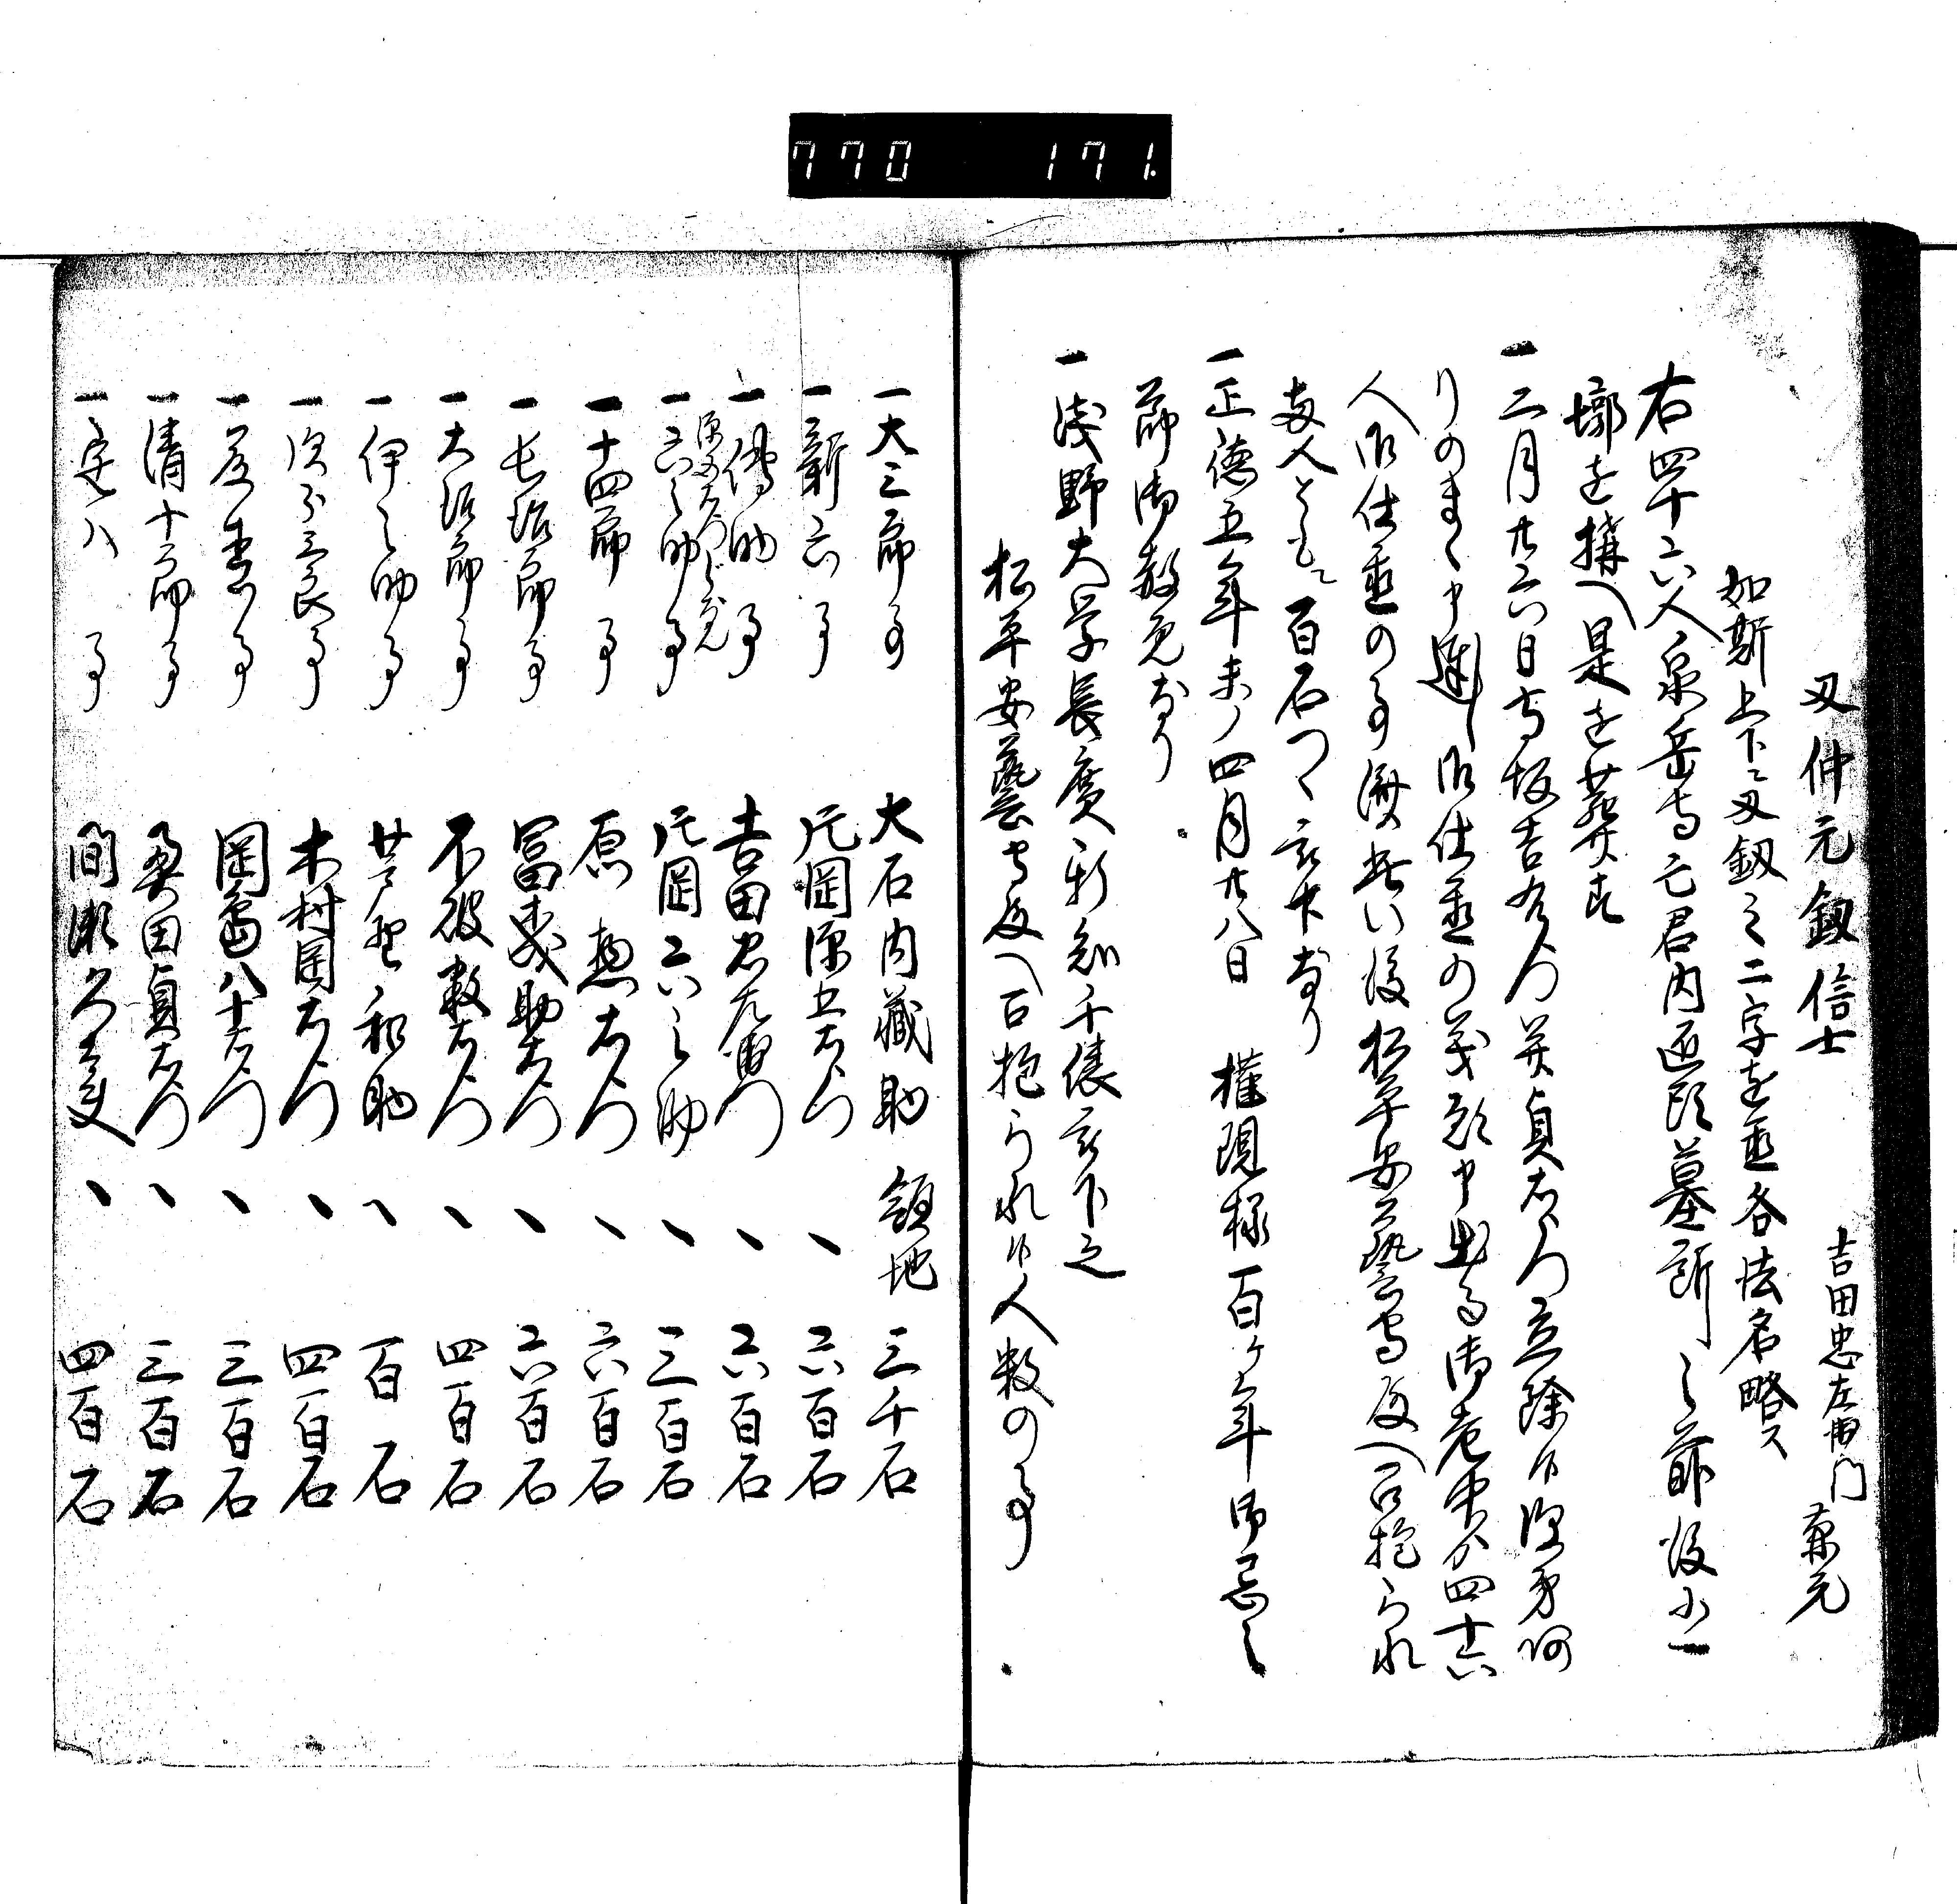 770 171.
刃仲元釼信士 吉田忠左衛門 兼亮
如斯上下ニ刃釼之二字を置各法名略ス
右四十六人泉岳寺亡君内匠頭墓所之前後ニ一
墎を構へ是を葬す
一二月廿六日寺坂吉右衛門并貞右衛門立除候
りのまゝ申達し御仕置の義願申出る御老中ゟ四十六
人御仕置の事済此後松平安藝守殿へ召抱られ
両人ともニ百石つゝ被下なり
一正徳五年未ノ四月廿八日 權現様百ケ年御忌之
節御赦免なり
一浅野大学長廣新知千俵被下之
松平安藝守殿へ召抱られ候人数の事
一大三郎事 大石内藏助 領地 三千石
一新六事 片岡源五右衛門 〃 六百石
一傳助事 吉田忠左衛門 〃 六百石
一六之助事 片岡六之助 〃 三百石
一十四郎事 原惣右衛門 〃 六百石
一長治郎事 冨森助右衛門 〃 六百石
一大治郎事 不破数右衛門 〃 四百石
一伊之助事 芦野和助 〃 百石
一次郎三良事 木村岡右衛門 〃 四百石
一事 岡島八十右衛門 〃 三百石
一清十郎事 奥田貞右衛門 〃 三百石
一定八事 間瀬久太夫 〃 四百石